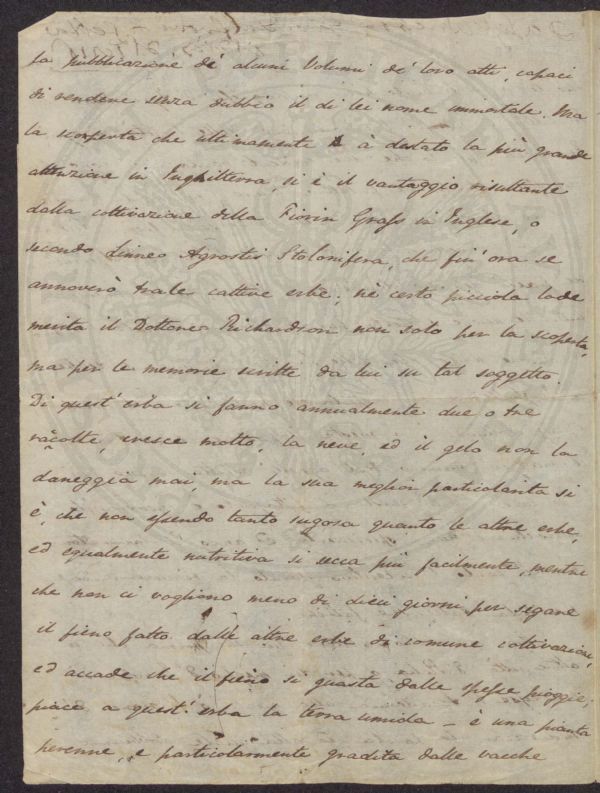 la pubblicazione de' alcuni Volumi de' loro atti, capaci
di rendere senza dubbio il di lei nome immortale. Ma
la scoperta che ultimamente à destato la più grande
attenzione in Inghilterra, si è il vantaggio risultante
dalla coltivazione della Fiorin Grass in Inglese, o
secondo Linneo Agrostis Stolonifera, che fin' ora se
annoverò tra le cattive erbe; nè certo picciola lode
merita il Dottore Richardson non solo per la scoperta,
ma per le memorie scritte da lui su tal soggetto.
Di quest' erba si fanno annualmente due o tre
racolte, cresce molto, la neve, ed il gelo non la
daneggia mai, ma la sua meglior particolarita si
è, che non essendo tanto sugosa quanto le altre erbe,
ed egualmente nutritiva si secca più facilmente, mentre
che non ci vogliono meno di dieci giorni per segare
il fieno fatto dalle altre erbe di comune coltivazione,
ed accade che il fieno si guasta dalle spesse pioggie;
piace a quest' erba la terra umida – è una pianta
perenne, e particolarmente gradita dalle vacche